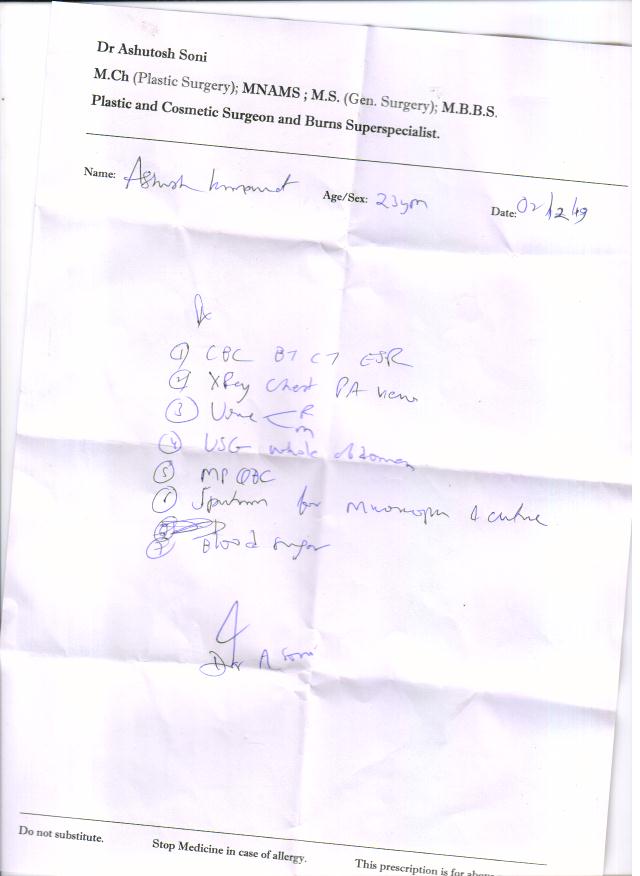 Dr Ashutosh Soni
M.Ch (Plastic Surgery); MNAMS ; M.S. (Gen. Surgery); M.B.B.S.
Plastic and Cosmetic Surgeon and Burns Superspecialist.
Name: Ashish Age/Sex: 23ym Date: 02/12/
① CBC BT CT ESR
② XRay Chest PA view
③ Urine R
m
④ USG whole abdomen
⑤ MP QBC
⑥ Sputum for & culture
⑦ Blood sugar
Dr A Soni
Do not substitute. Stop Medicine in case of allergy. This prescription is for